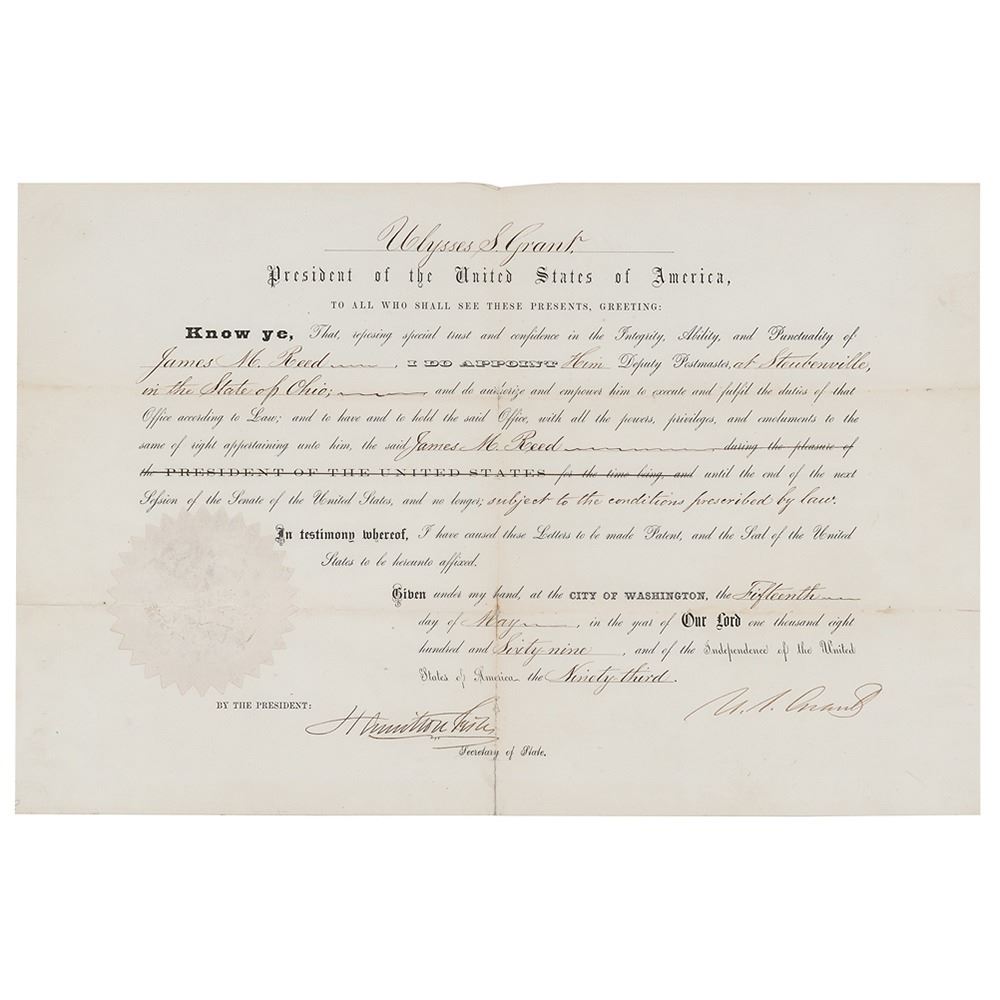 Ulysses S. Grant,
President of the United States of America,
TO ALL WHO SHALL SEE THESE PRESENTS, GREETING:
Know ye, That, reposing special trust and confidence in the Integrity, Ability, and Punctuality of
James M. Reed, I DO APPOINT Him Deputy Postmaster, at Steubenville,
in the State of Ohio; and do authorize and empower him to execute and fulfil the duties of that
Office according to Law; and to have and to hold the said Office, with all the powers, privileges, and emoluments to the
same of right appertaining unto him, the said James M. Reed, during the pleasure of
the PRESIDENT OF THE UNITED STATES for the time being, and until the end of the next
Session of the Senate of the United States, and no longer; subject to the conditions prescribed by law.
In testimony whereof, I have caused these Letters to be made Patent, and the Seal of the United
States to be hereunto affixed.
Given under my hand, at the CITY OF WASHINGTON, the Fifteenth
day of May, in the year of Our Lord one thousand eight
hundred and Sixty nine, and of the Independence of the United
States of America the Ninety third.
BY THE PRESIDENT:
U. S. Grant
Hamilton Fish
Secretary of State.